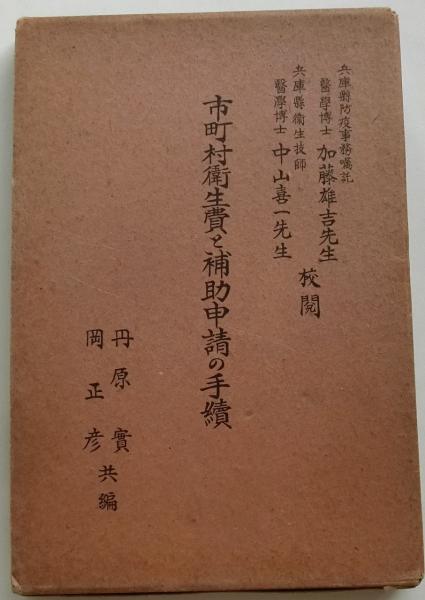 兵庫縣防疫事務囑託
醫學博士 加藤雄吉先生
兵庫縣衞生技師
醫學博士 中山喜一先生
校閲
市町村衞生費と補助申請の手續
丹原實
岡正彦 共編